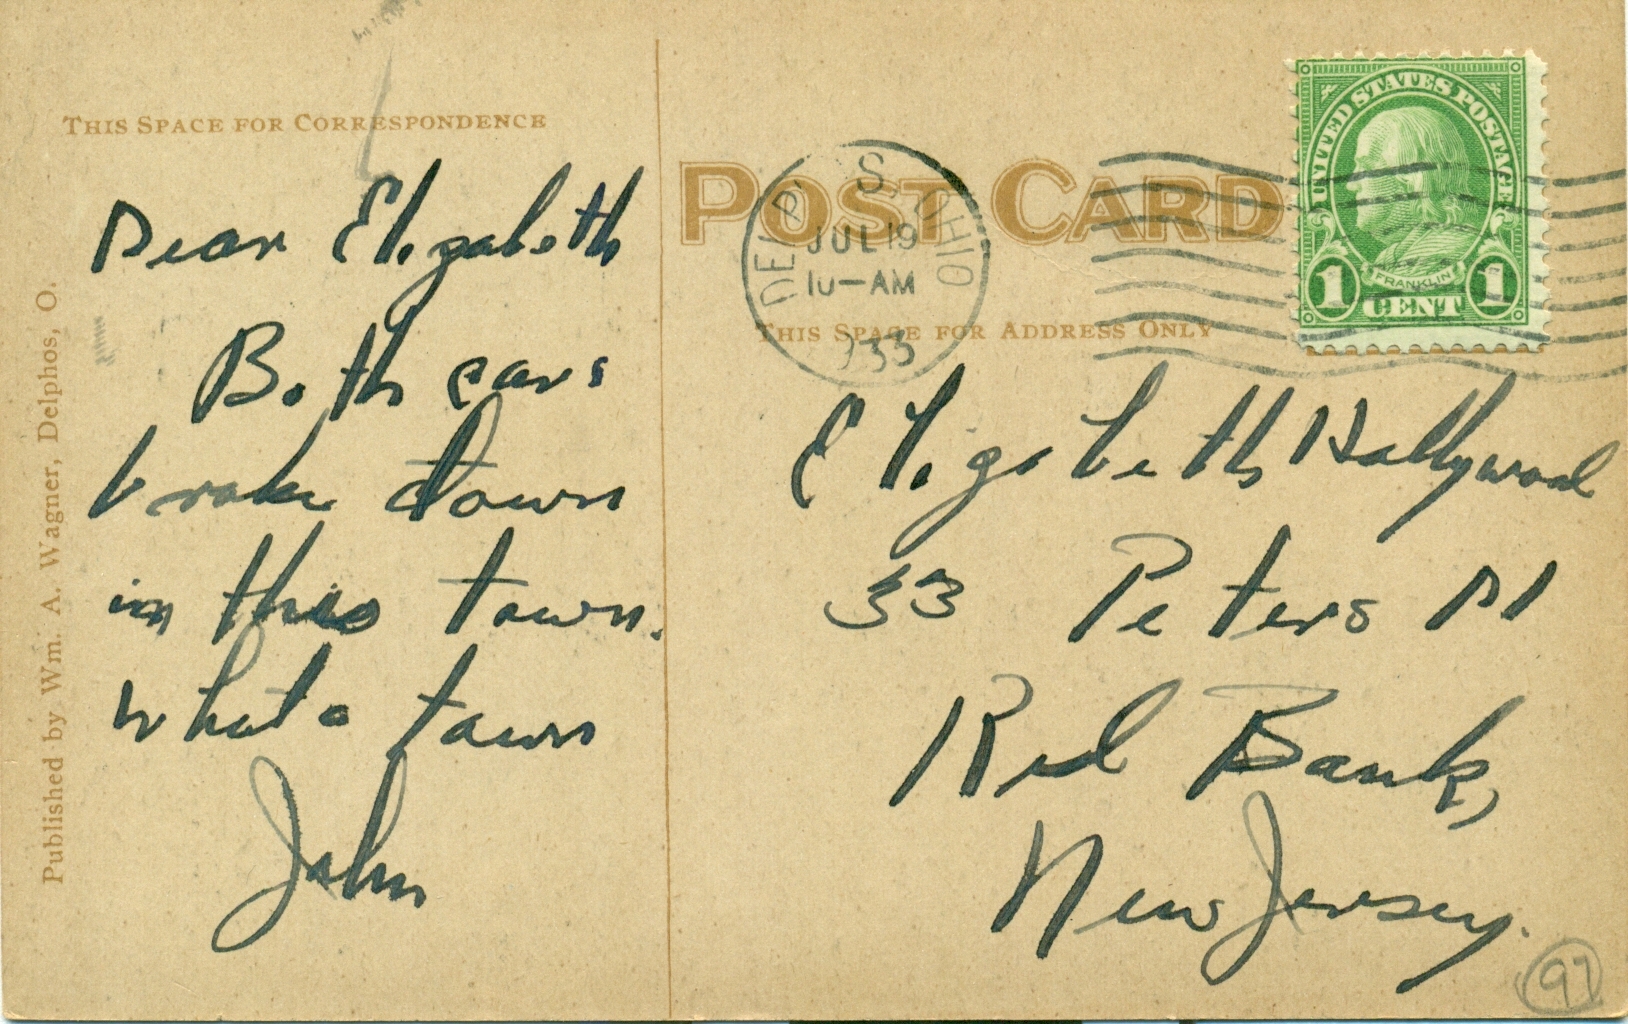 THIS SPACE FOR CORRESPONDENCE
Dear Elizabeth
Both cars
broke down
in this town.
What a town
John
Published by Wm. A. Wagner, Delphos, O.
POST CARD
DELPHOS OHIO
JUL 19
10-AM
1933
THIS SPACE FOR ADDRESS ONLY
UNITED STATES POSTAGE
FRANKLIN
1 CENT 1
Elizabeth Hallywood
33 Peters Pl
Red Bank,
New Jersey.
97